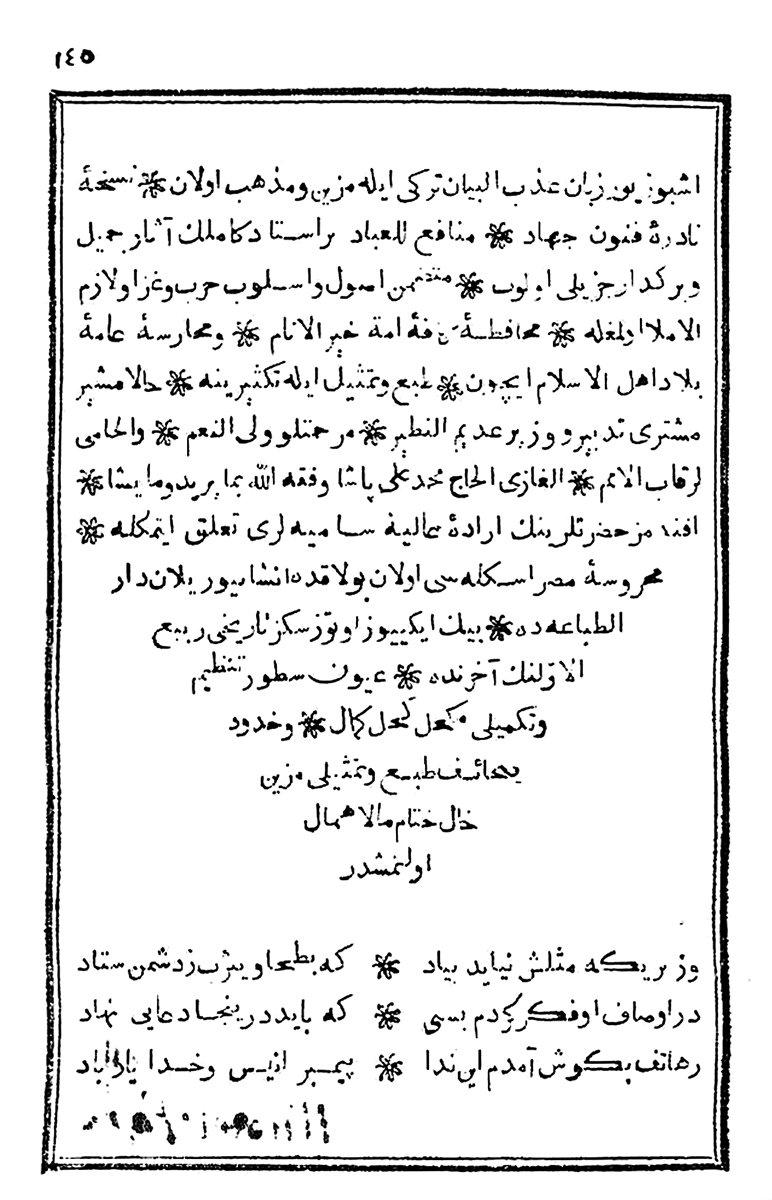 ١٤٥
اشبو زیور زبان عذب البیان ترکی ایله مزین ومذهب اولان ❊ نسخهٔ
نادرهٔ فنون جهاد ❊ منافع للعباد براستاد کاملك آثار جمیل
وبرکدار جزیلی اولوب ❊ متضمن اصول واسلوب حرب وغزا ولازم
الاملا اولمغله ❊ محافظهٔ کافهٔ امة خیر الانام ❊ ومحارسهٔ عامهٔ
بلاد اهل الاسلام ایچون ❊ طبع وتمثیل ایله تکثیرینه ❊ حالا مشیر
مشتری تدبیر ووزیر عدیم النظیر ❊ مرحمتلو ولی النعم ❊ والحامی
لرقاب الامم ❊ الغازی الحاج محمد علی پاشا وفقه الله بما یرید وما یشا ❊
افندمز حضرتلرینك ارادهٔ عالیهٔ سامیه لری تعلق ایتمکله ❊
محروسهٔ مصر اسکله سی اولان بولاقده انشا بیوریلان دار
الطباعه ده ❊ بیك ایکییوز اوتوز سکز تاریخی ربیع
الاولنك آخرنده ❊ عیون سطور تنظیم
وتکمیلی مکحل کحل کمال ❊ وخدود
صحائف طبع وتمثیلی مزین
خال ختام مالا همال
اولنمشدر
وزیریکه مثلش نیاید بیاد ❊ که بطحا ویثرب زدشمن ستاد
در اوصاف او فکر کردم بسی ❊ که باید درینجا دعایی نهاد
زهاتف بکوش آمدم این ندا ❊ پیمبر انیس وخدا یار باد